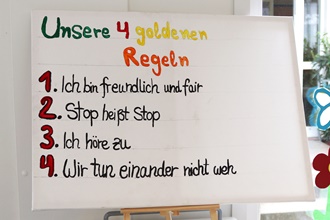 Unsere 4 goldenen
Regeln
1. Ich bin freundlich und fair
2. Stop heißt Stop
3. Ich höre zu
4. Wir tun einander nicht weh